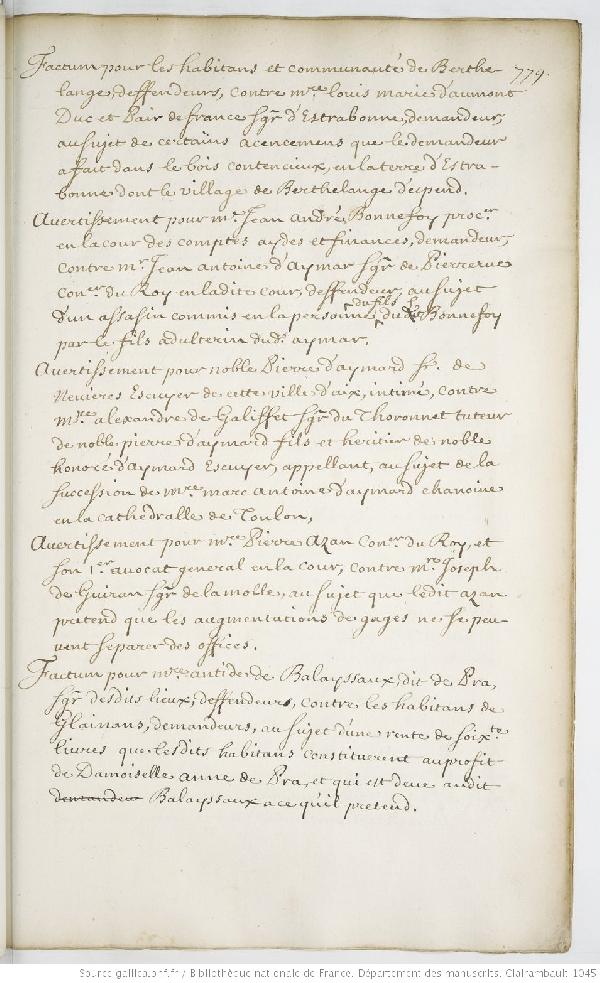 779.
Factum pour les habitans et communauté de Berthe-
lange, deffendeurs, contre mre. louis marie d'aumont
Duc et Pair de france sgr. d'Estrabonne, demandeur,
au sujet de certains acencemens que le demandeur
a fait dans le bois contencieux, en la terre d'Estra-
bonne dont le village de Berthelange d'epend.
Avertissement pour mr. Jean André Bonnefoy procer.
en la cour des comptes aydes et finances, demandeur,
contre mr. Jean antoine d'Aymar sgr. de Pierrerue
coner. du Roy en ladite cour, deffendeur, au sujet
d'un assassin commis en la personne du fils du Bonnefoy
par le fils adulterin dud. aymar.
Avertissement pour noble Pierre d'aymard sr. de
Nevieres Escuyer de cette ville d'aix, intimé, contre
mre. alexandre de Galiffet sgr. du Thoronnet tuteur
de noble pierre d'aymard fils et heritier de noble
honoré d'Aymard Escuyer, appellant, au sujet de la
succession de mre. marc antoine d'aymard chanoine
en la cathédralle de Toulon,
Avertissement pour mre. Pierre Azan coner. du Roy, et
son 1er. avocat general en la cour, contre mre. Joseph
de Guiran sgr. de la molle, au sujet que ledit azan
pretend que les augmentations de gages ne se peu-
vent separer des offices.
Factum pour mre. antide de Balayssaux, dit de Pra,
sgr. desdits lieux, deffendeurs, contre les habitans de
Glainans, demandeurs, au sujet d'une rente de soixte.
livres que lesdits habitans constituerent au profit
de Damoiselle anne de Pra, et qui est deue audit
demandeur Balayssaux a ce qu'il pretend.
Source gallica.bnf.fr / Bibliothèque nationale de France. Département des manuscrits. Clairambault 1045